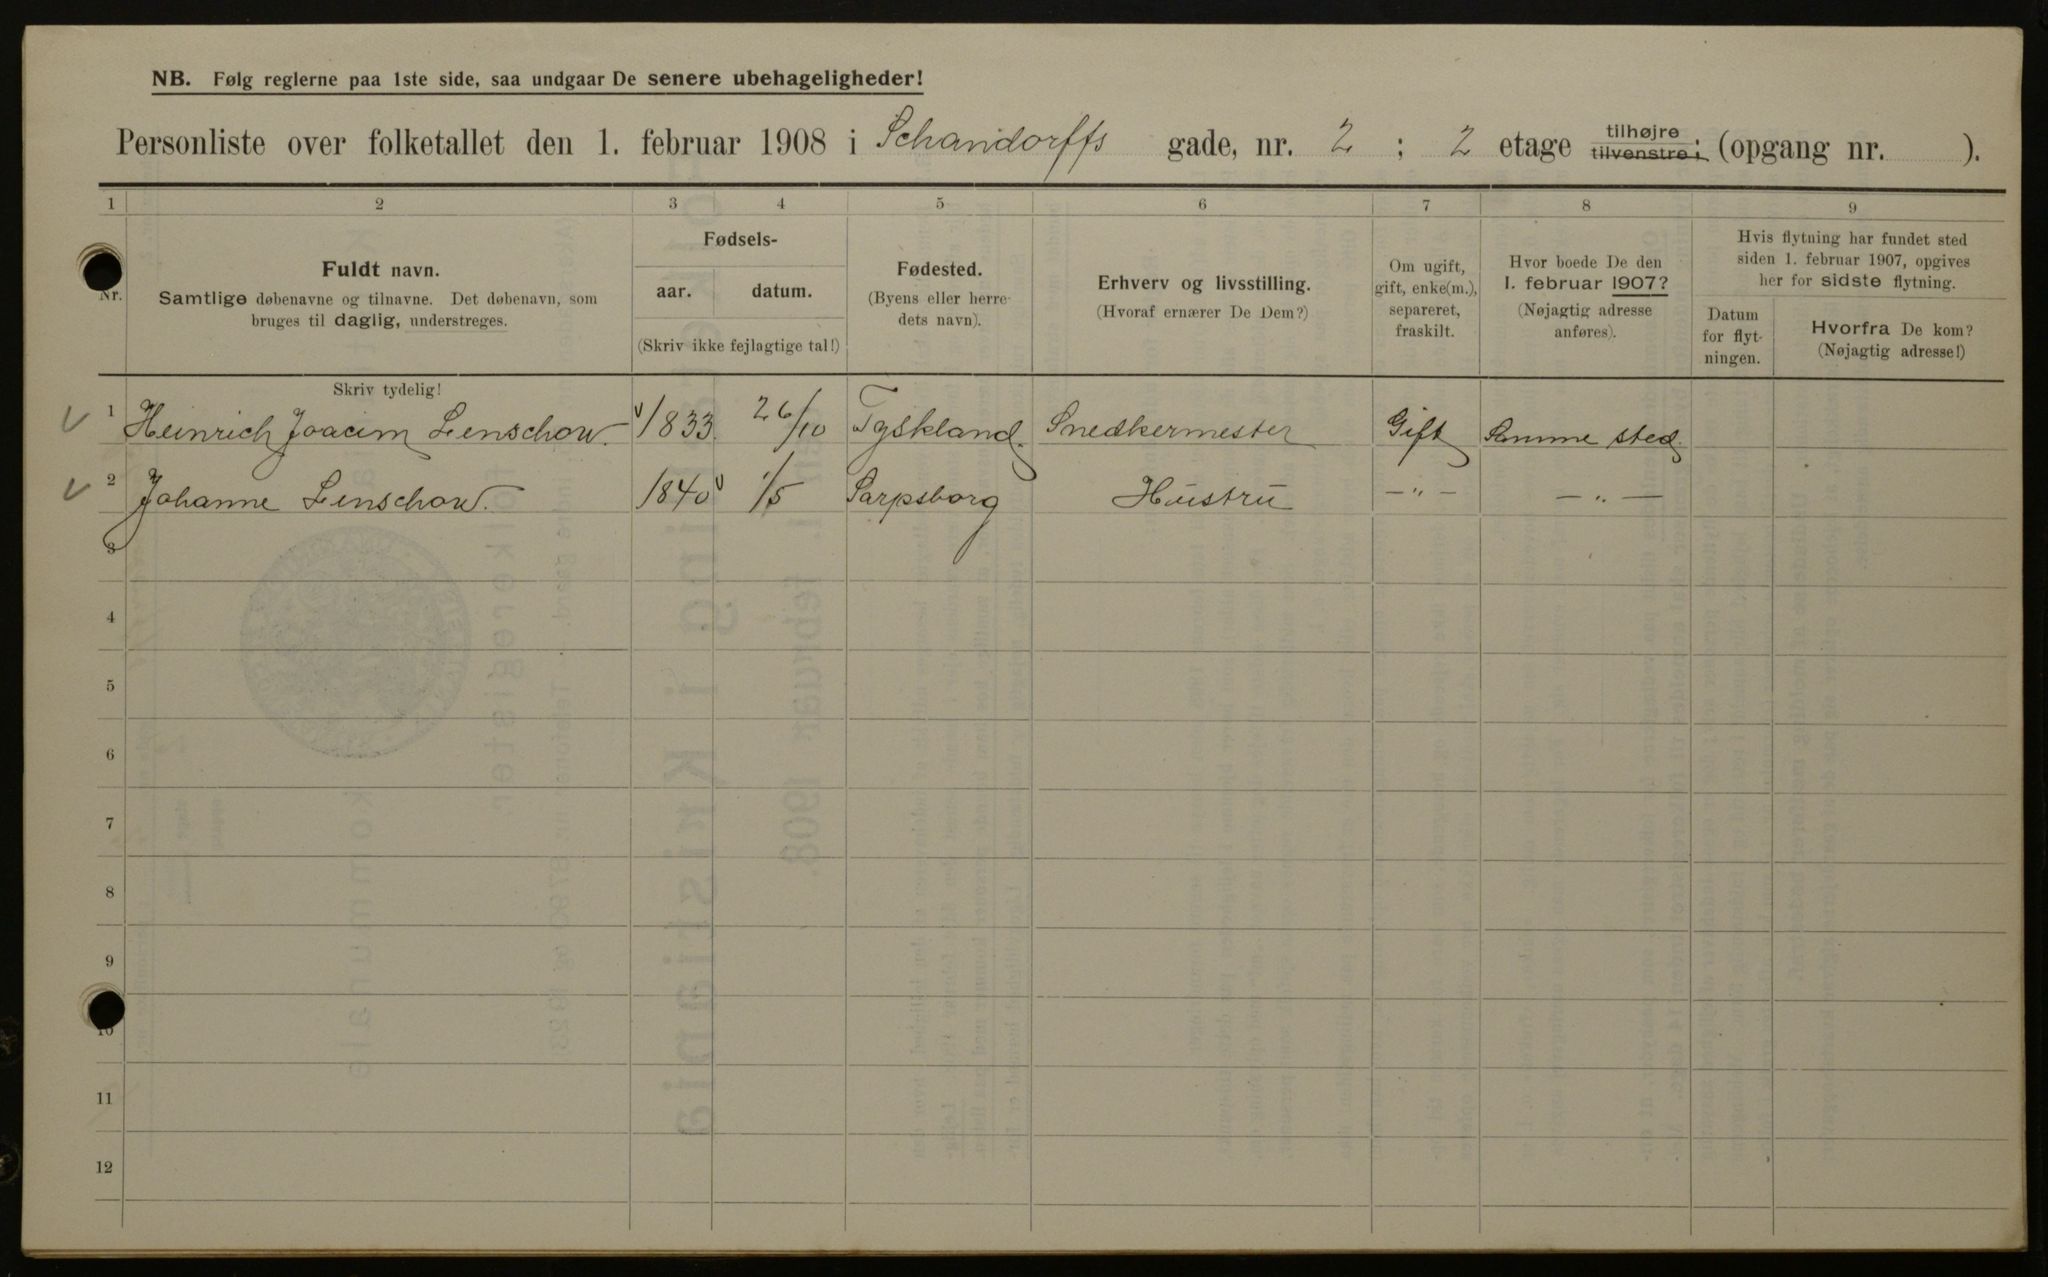 NB. Følg reglerne paa 1ste side, saa undgaar De senere ubehageligheder!
Personliste over folketallet den 1. februar 1908 i Schandorffs gade, nr. 2 ; 2 etage tilhøjre tilvenstre; (opgang nr. ).
1 2 3 4 5 6 7 8 9
Nr.
Fuldt navn.
Samtlige døbenavne og tilnavne. Det døbenavn, som
bruges til daglig, understreges.
Fødsels-
aar. datum.
(Skriv ikke fejlagtige tal!)
Fødested.
(Byens eller herre-
dets navn).
Erhverv og livsstilling.
(Hvoraf ernærer De Dem?)
Om ugift,
gift, enke(m.),
separeret,
fraskilt.
Hvor boede De den
1. februar 1907?
(Nøjagtig adresse
anføres).
Hvis flytning har fundet sted
siden 1. februar 1907, opgives
her for sidste flytning.
Datum
for flyt-
ningen.
Hvorfra De kom?
(Nøjagtig adresse!)
Skriv tydelig!
1 Heinrich Joacim Lenschow. 1833. 26/10 Tyskland. Snedkermester Gift Samme sted.
2 Johanne Lenschow. 1840 1/5 Sarpsborg Hustru — " — — " —
3
4
5
6
7
8
9
10
11
12